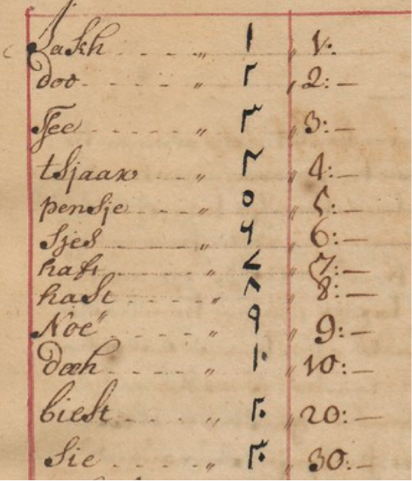 Jakh - - - - „ ١ „ 1:
doo - - - - - „ ٢ „ 2: —
See - - - - - „ ٣ „ 3: —
tsjaar - - - „ ۴ „ 4: —
pensje - - - „ ٥ „ 5: —
sjes - - - - „ ۶ „ 6: —
haft - - - - „ ٧ „ 7: —
hast - - - - „ ٨ „ 8: —
Noe - - - - „ ٩ „ 9: —
dæh - - - - „ ١٠ „ 10: —
biest - - - „ ٢٠ „ 20: —
sie - - - - „ ٣٠ „ 30: —